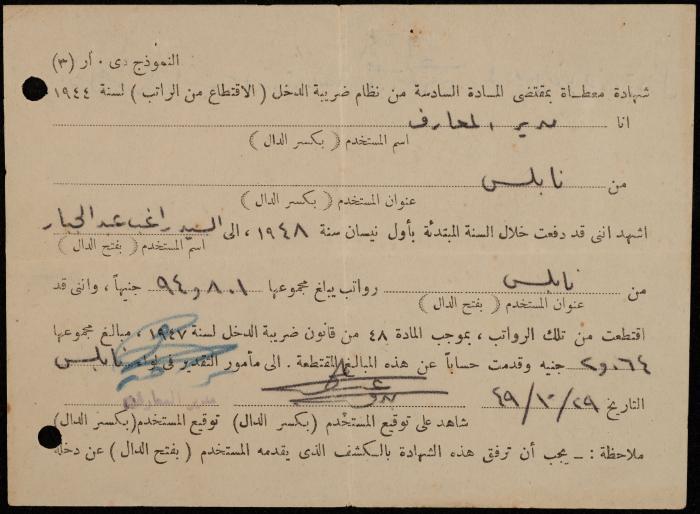 النموذج ى ٠ أر (٣)
شهادة معطاة بمقتضى المادة السادسة من نظام ضريبة الدخل ( الاقتطاع من الراتب ) لسنة ١٩٤٤
انا مدير المعارف
اسم المستخدم ( بكسر الدال )
من نابلس
عنوان المستخدم ( بكسر الدال )
اشهد اننى قد دفعت خلال السنة المبتدئة بأول نيسان سنة ١٩٤٨ ، الى السيد راغب عبد الجبار
اسم المستخدم ( بفتح الدال )
من نابلس رواتب يبلغ مجموعها جنيهاً ، واننى قد
عنوان المستخدم ( بفتح الدال )
اقتطعت من تلك الرواتب ، بموجب المادة ٤٨ من قانون ضريبة الدخل لسنة ١٩٤٧ ، مبالغ مجموعها
جنيه وقدمت حساباً عن هذه المبالغ المقتطعة . الى مأمور التقدير فى لواء نابلس
التاريخ ٢٩/١٠/٤٩
مدير المعارف
شاهد على توقيع المستخدم (بكسر الدال) توقيع المستخدم (بكسر الدال)
ملاحظة : ـ يجب أن ترفق هذه الشهادة بالكشف الذى يقدمه المستخدم ( بفتح الدال ) عن دخله